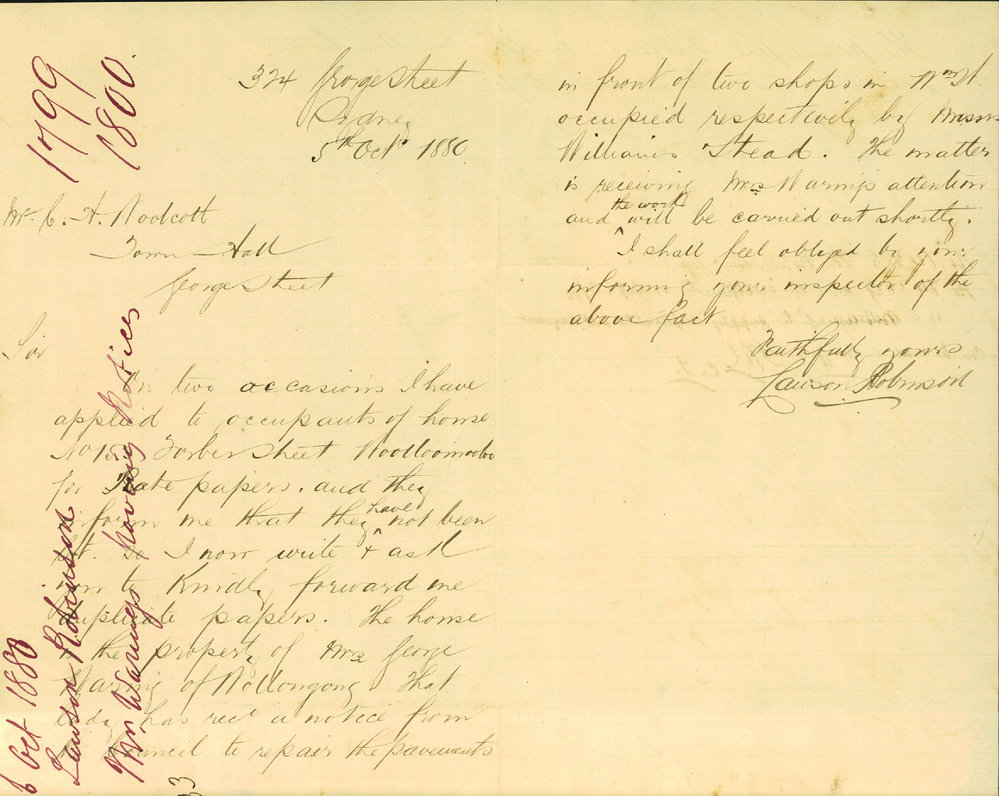 324 George Street
Sydney
5th Octr 1880.
Mr C. H. Woolcott
Town Hall
George Street
Sir
On two occasions I have
applied to occupants of house
No 15 Forbes Street Woolloomooloo
for Rate papers. and they
inform me that they have not been
left. So I now write & ask
you to Kindly forward me
duplicate papers. The house
is the property of Mrs George
Waring of Wollongong. That
lady has recd a notice from
the Council to repair the pavements
in front of two shops in Wm St.
occupied respectively by Messrs
Williams & Stead. The matter
is receiving Mrs Waring's attention
and the work will be carried out shortly.
I shall feel obliged by your
informing your inspector of the
above fact
Faithfully yours
Lawson Robinson
1799
1800.
6 Oct 1880
Lawson Robinson
Mrs Warings paving Notices
33